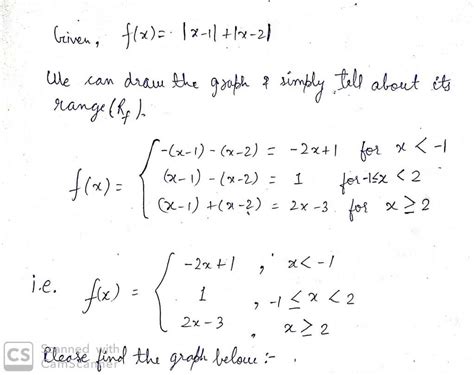 Given, f(x) = |x-1| + |x-2|
We can draw the graph & simply tell about its
range (R_f).
f(x) = { -(x-1) - (x-2) = -2x+1 for x < -1
(x-1) - (x-2) = 1 for -1≤x < 2
(x-1) + (x-2) = 2x-3 for x ≥ 2
i.e. f(x) = { -2x+1 , x < -1
1 , -1 ≤ x < 2
2x-3 , x ≥ 2
CS Scanned with
CamScanner
Please find the graph below :-